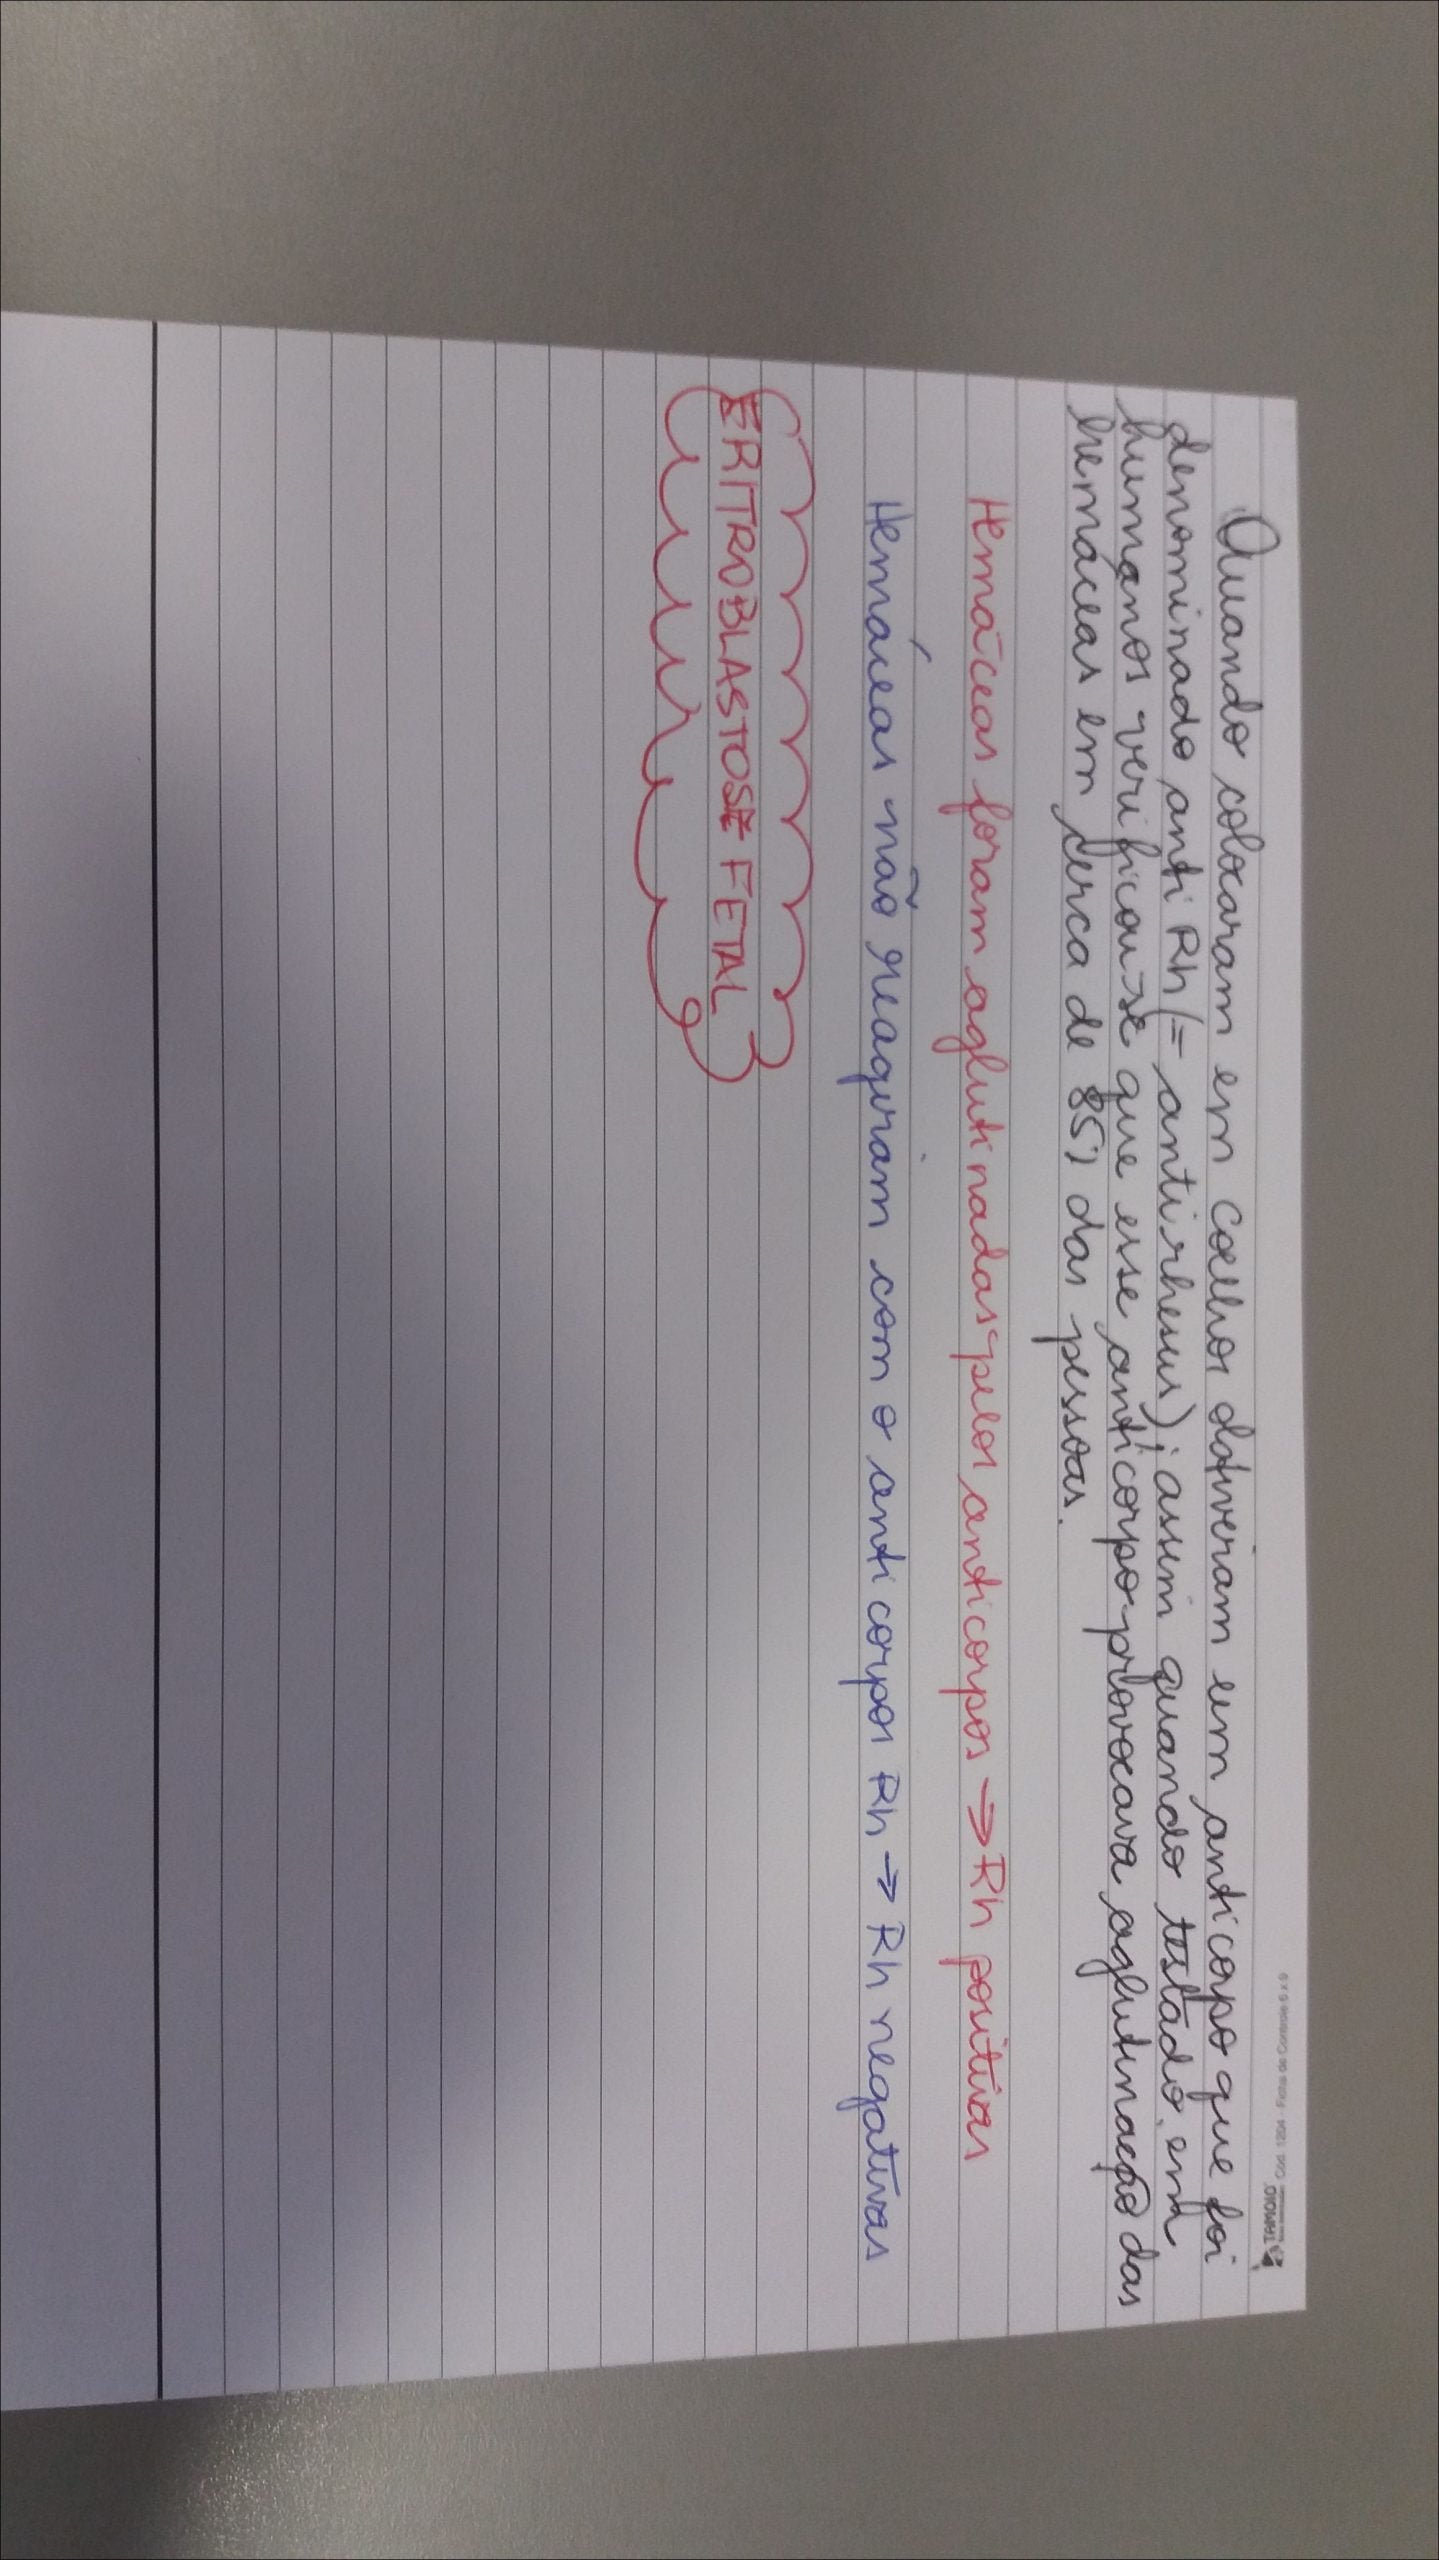 TAMOIO Cód. 1204 - Ficha de Controle 6 x 9
Quando colocaram em coelhos obtiveram um anticorpo que foi
denominado anti Rh (= anti rhesus); assim quando testado em
humanos verificou-se que esse anticorpo provocava aglutinação das
hemáceas em cerca de 85% das pessoas.
Hemáceas foram aglutinadas pelos anticorpos → Rh positivas
Hemáceas não reagiram com o anticorpos Rh → Rh negativas
ERITROBLASTOSE FETAL